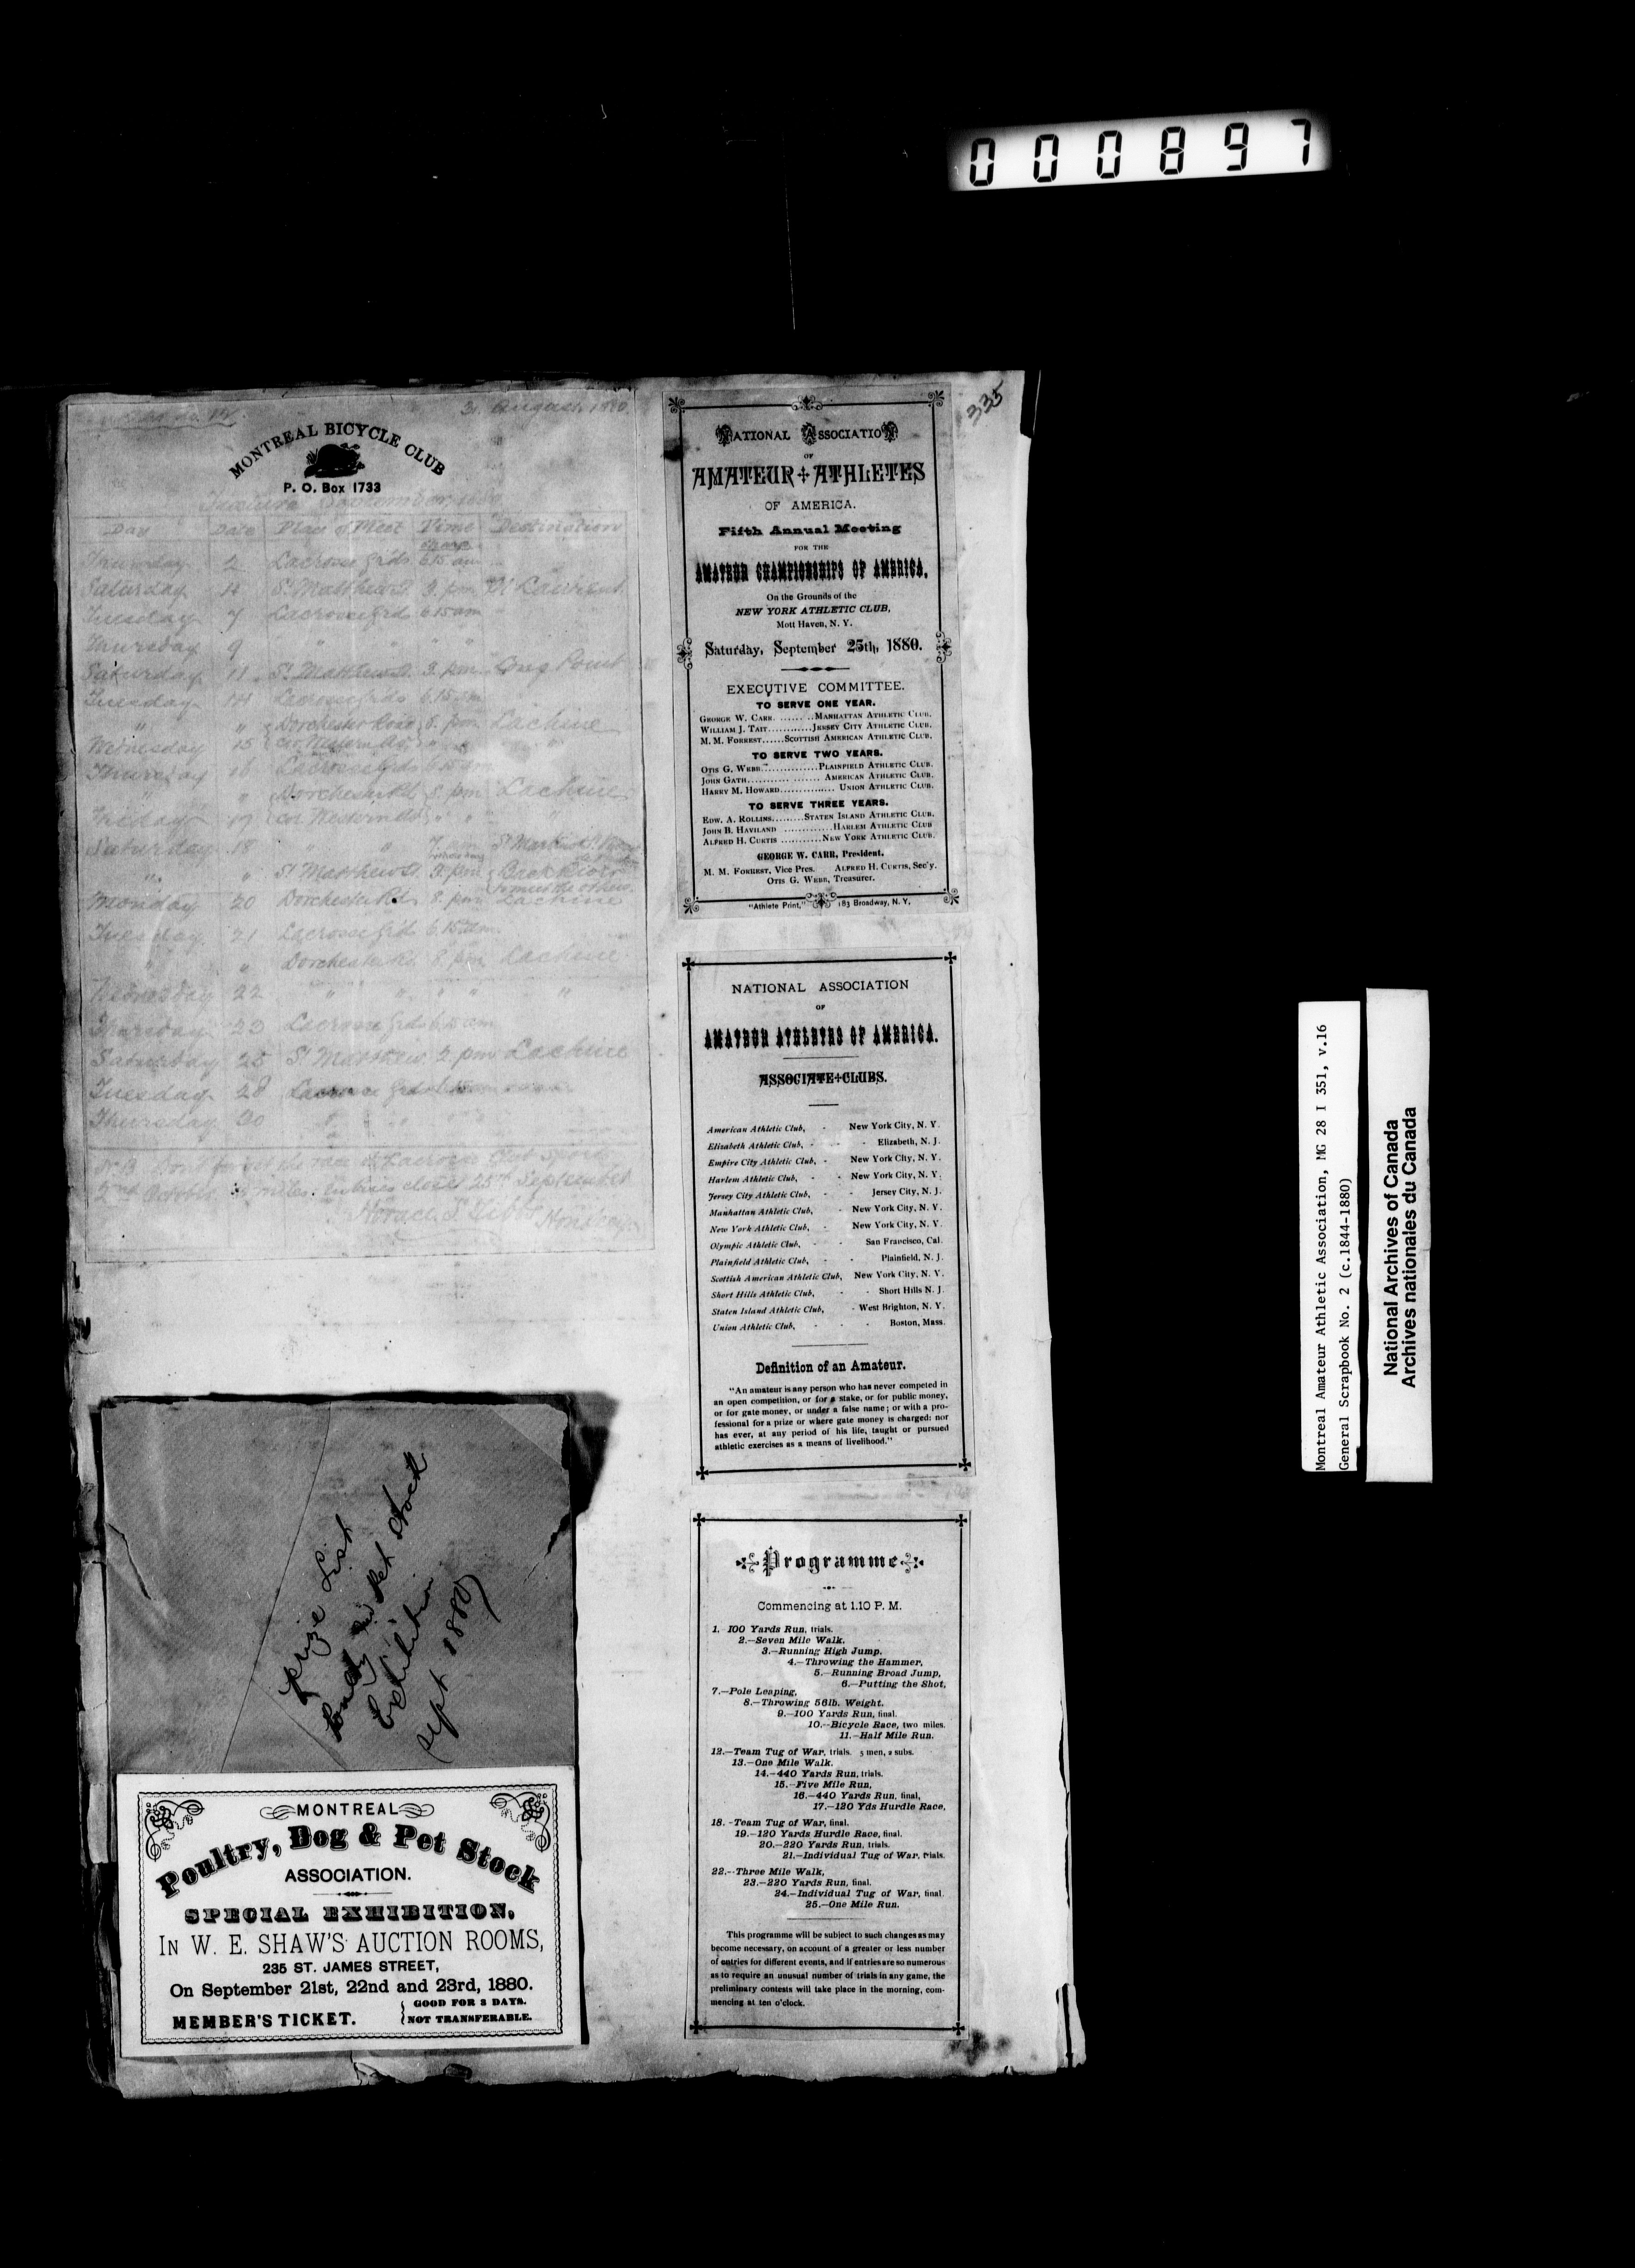 000897
335
31 August 1880
MONTREAL BICYCLE CLUB
P. O. Box 1733
September
Day Date Place of Meet Time Destination
Thursday 2 Lacrosse Grds 6.15 am
Saturday 4 St Matthew St. 3. pm St Laurent
Tuesday 7 Lacrosse Grd 6.15 am
Thursday 9 " " " "
Saturday 11 St Matthew St. 3. pm Long Point
Tuesday 14 Lacrosse Grds 6.15 am
" " Dorchester Road 8. pm Lachine
Wednesday 15 cor Western Av " " "
Thursday 16 Lacrosse Grds 6.15 am
" " Dorchester Rd 8. pm Lachine
Friday 17 cor Western Av " " "
Saturday 18 " " 7. am
" " St Matthew St. 3. pm Back River
to meet the others
Monday 20 Dorchester Rd. 8. pm Lachine
Tuesday 21 Lacrosse Grd 6.15 am
" " Dorchester Rd. 8. pm Lachine
Wednesday 22 " " " " "
Thursday 23 Lacrosse Grds 6.15 am
Saturday 25 St Matthew 2. pm Lachine
Tuesday 28 Lacrosse Grds 6.15 am
Thursday 30 " "
N.B. Don't forget the race at Lacrosse Club Sports
2nd October miles. Entries close 25th September
Horace S Tibbs Hon Secy
Prize List
Poultry and Pet Stock
Exhibition
Sept 1880
MONTREAL
Poultry, Dog & Pet Stock
ASSOCIATION.
SPECIAL EXHIBITION,
IN W. E. SHAW'S AUCTION ROOMS,
235 ST. JAMES STREET,
On September 21st, 22nd and 23rd, 1880.
MEMBER'S TICKET. { GOOD FOR 3 DAYS.
NOT TRANSFERABLE.
NATIONAL ASSOCIATION
OF
AMATEUR ATHLETES
OF AMERICA.
Fifth Annual Meeting
FOR THE
AMATEUR CHAMPIONSHIPS OF AMERICA,
On the Grounds of the
NEW YORK ATHLETIC CLUB,
Mott Haven, N. Y.
Saturday, September 25th, 1880.
EXECUTIVE COMMITTEE.
TO SERVE ONE YEAR.
GEORGE W. CARR.........MANHATTAN ATHLETIC CLUB.
WILLIAM J. TAIT...........JERSEY CITY ATHLETIC CLUB.
M. M. FORREST......SCOTTISH AMERICAN ATHLETIC CLUB.
TO SERVE TWO YEARS.
OTIS G. WEBB..............PLAINFIELD ATHLETIC CLUB.
JOHN GATH.................. AMERICAN ATHLETIC CLUB.
HARRY M. HOWARD............. UNION ATHLETIC CLUB.
TO SERVE THREE YEARS.
EDW. A. ROLLINS.........STATEN ISLAND ATHLETIC CLUB.
JOHN B. HAVILAND ............HARLEM ATHLETIC CLUB
ALFRED H. CURTIS ..........NEW YORK ATHLETIC CLUB.
GEORGE W. CARR, President.
M. M. FORREST, Vice Pres. ALFRED H. CURTIS, Sec'y.
OTIS G. WEBB, Treasurer.
"Athlete Print," 183 Broadway, N. Y.
NATIONAL ASSOCIATION
OF
AMATEUR ATHLETES OF AMERICA.
ASSOCIATE+CLUBS.
American Athletic Club, - New York City, N. Y.
Elizabeth Athletic Club, - - - Elizabeth, N. J.
Empire City Athletic Club, - New York City, N. Y.
Harlem Athletic Club, - - New York City, N. Y.
Jersey City Athletic Club, - - Jersey City, N. J.
Manhattan Athletic Club, - New York City, N. Y.
New York Athletic Club, - New York City, N. Y.
Olympic Athletic Club, - - San Francisco, Cal.
Plainfield Athletic Club, - - Plainfield, N. J.
Scottish American Athletic Club, New York City, N. Y.
Short Hills Athletic Club, - - Short Hills N. J.
Staten Island Athletic Club, - West Brighton, N. Y.
Union Athletic Club, - - - Boston, Mass.
Definition of an Amateur.
"An amateur is any person who has never competed in
an open competition, or for a stake, or for public money,
or for gate money, or under a false name; or with a pro-
fessional for a prize or where gate money is charged: nor
has ever, at any period of his life, taught or pursued
athletic exercises as a means of livelihood."
Programme
Commencing at 1.10 P. M.
1.-100 Yards Run, trials.
2.—Seven Mile Walk,
3.—Running High Jump.
4.—Throwing the Hammer,
5.—Running Broad Jump,
6.—Putting the Shot,
7.—Pole Leaping,
8.—Throwing 56lb. Weight.
9.—100 Yards Run, final.
10.—Bicycle Race, two miles.
11.—Half Mile Run.
12.—Team Tug of War, trials. 5 men, 2 subs.
13.—One Mile Walk.
14.—440 Yards Run, trials.
15.—Five Mile Run,
16.—440 Yards Run, final,
17.—120 Yds Hurdle Race,
18.-Team Tug of War, final.
19.—120 Yards Hurdle Race, final.
20.—220 Yards Run, trials.
21.—Individual Tug of War, trials.
22.—Three Mile Walk,
23.—220 Yards Run, final.
24.—Individual Tug of War, final.
25.—One Mile Run.
This programme will be subject to such changes as may
become necessary, on account of a greater or less number
of entries for different events, and if entries are so numerous
as to require an unusual number of trials in any game, the
preliminary contests will take place in the morning, com-
mencing at ten o'clock.
Montreal Amateur Athletic Association, MG 28 I 351, v.16
General Scrapbook No. 2 (c.1844-1880)
National Archives of Canada
Archives nationales du Canada